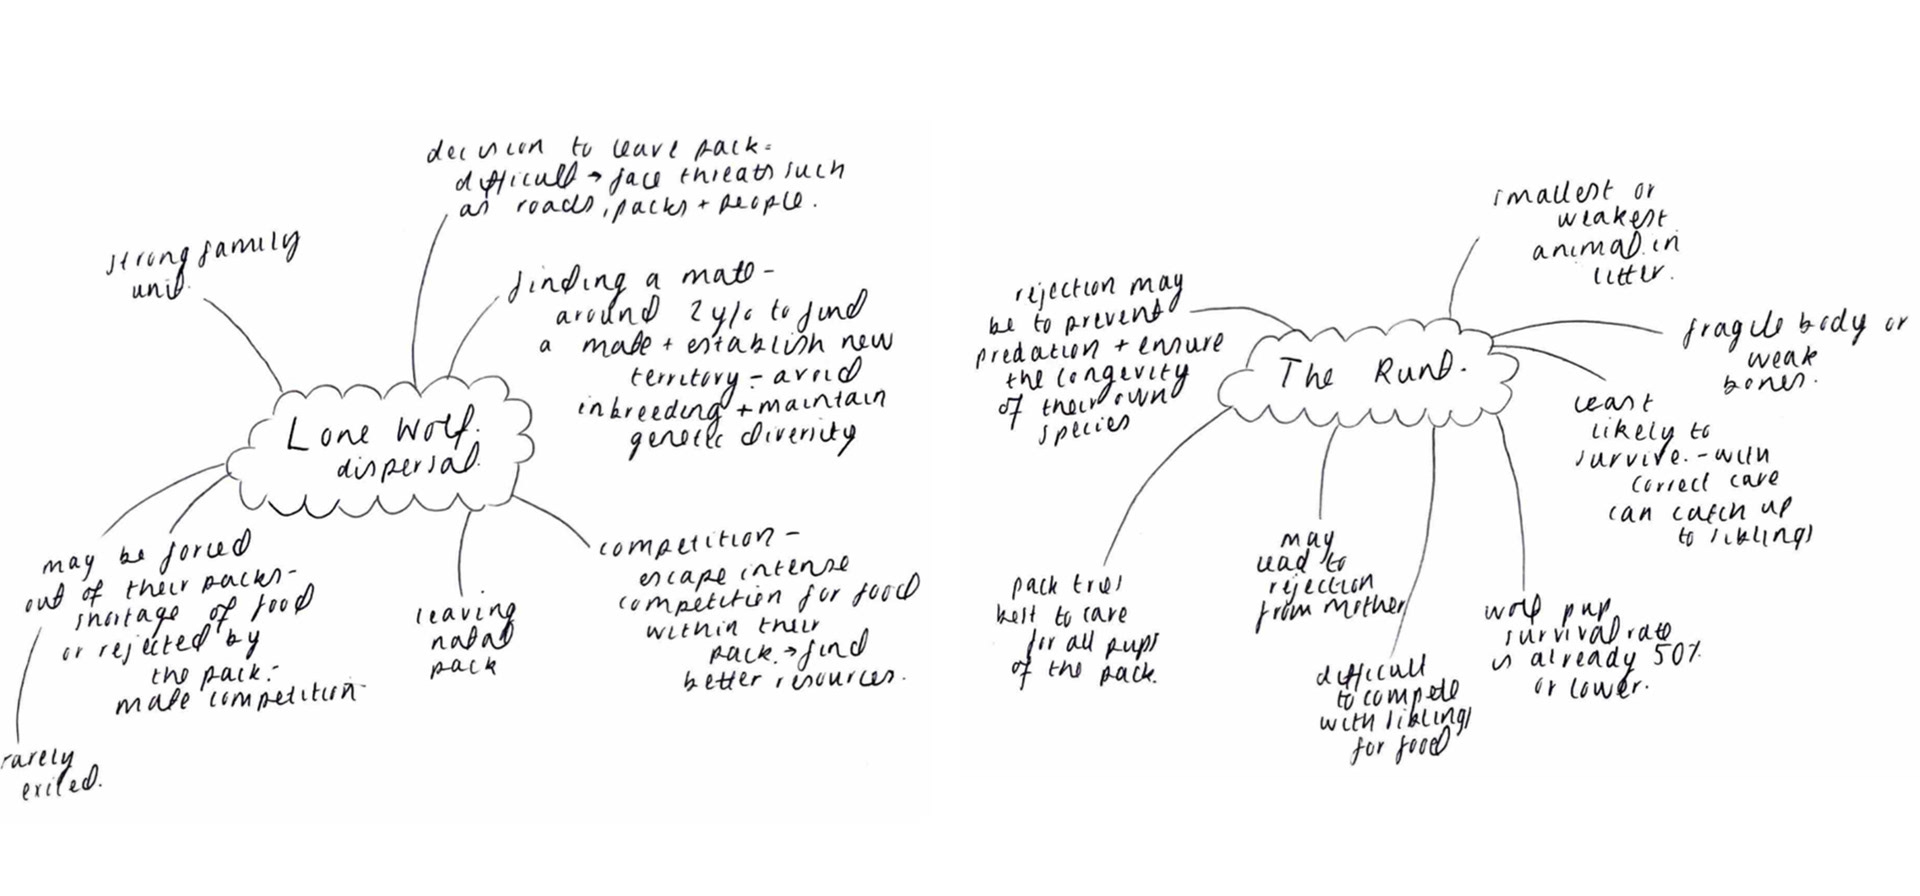 decision to leave pack -
difficult → face threats such
as roads, packs + people.
strong family
unit.
finding a mate -
around 2 y/o to find
a mate + establish new
territory - avoid
inbreeding + maintain
genetic diversity
Lone Wolf.
dispersal.
may be forced
out of their packs -
shortage of food
or rejected by
the pack -
male competition
rarely
exiled.
leaving
natal
pack
competition -
escape intense
competition for food
within their
pack. → find
better resources.
smallest or
weakest
animal in
litter.
rejection may
be to prevent
predation + ensure
the longevity
of their own
species
The Runt.
fragile body or
weak
bones.
least
likely to
survive. - with
correct care
can catch up
to siblings
pack tries
best to care
for all pups
of the pack.
may
lead to
rejection
from mother
difficult
to compete
with siblings
for food
wolf pup
survival rate
is already 50%
or lower.